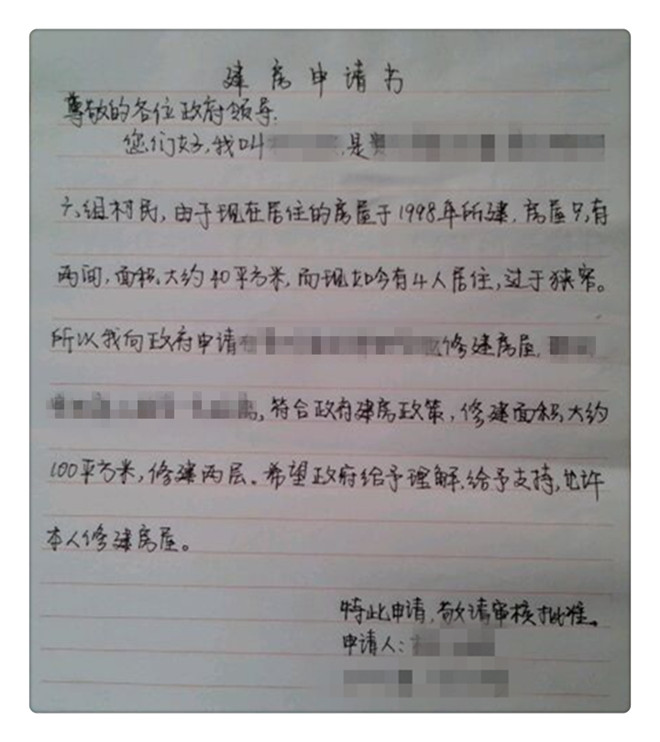 建房申请书
尊敬的各位政府领导.
您们好,我叫 ,是
六组村民,由于现在居住的房屋于1998年所建,房屋只有
两间,面积大约40平方米,而现如今有4人居住,过于狭窄。
所以我向政府申请 修建房屋,
,符合政府建房政策,修建面积大约
100平方米,修建两层。希望政府给予理解,给予支持,允许
本人修建房屋。
特此申请,敬请审核批准。
申请人: